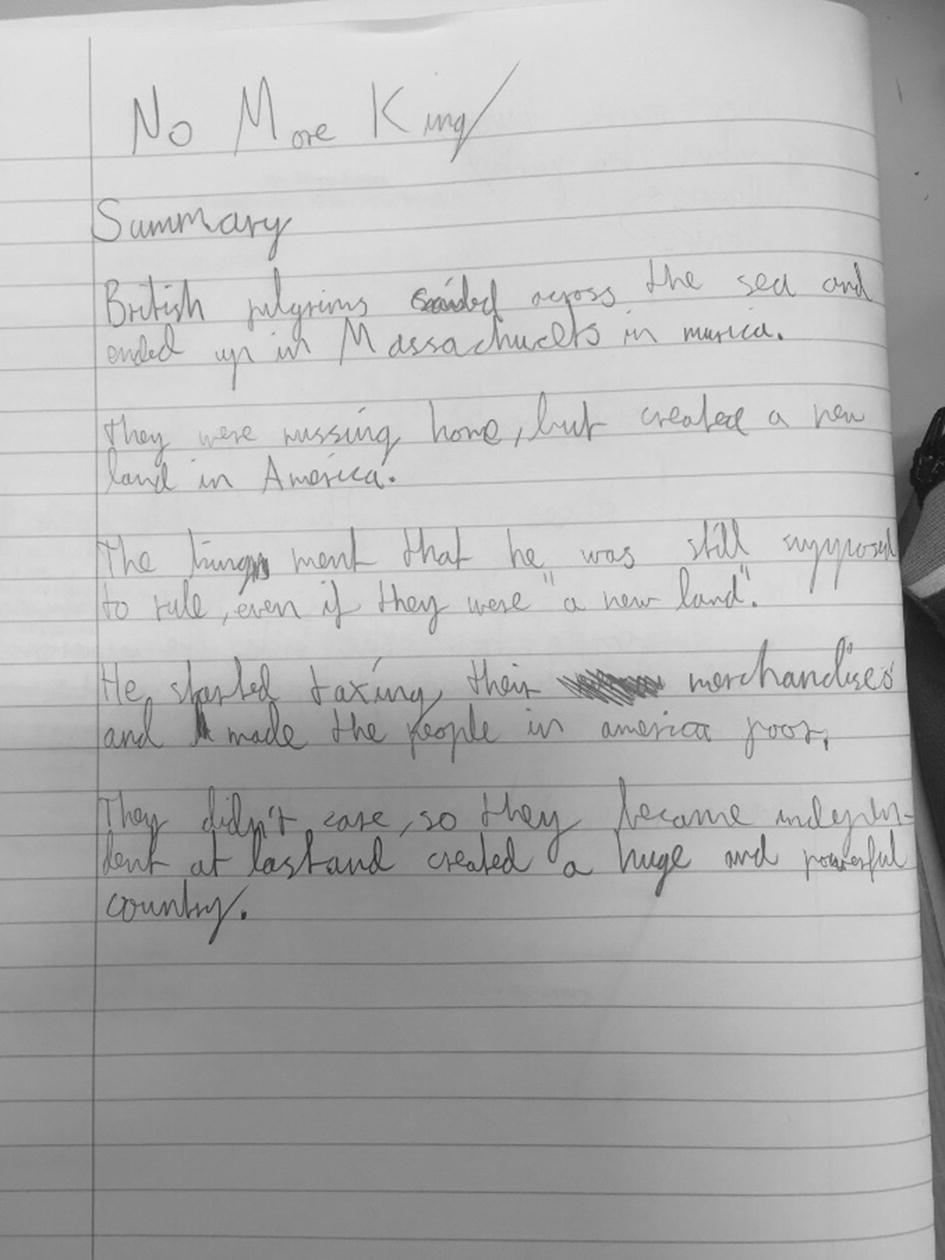 No More King
Summary
British pilgrims sailed across the sea and
ended up in Massachucets in murica.
They were missing home, but created a new
land in America.
The king ment that he was still supposed
to rule, even if they were "a new land".
He started taxing their merchandises
and made the people in america poor.
They didn't care, so they became indepen-
dent at last and created a huge and powerful
country.